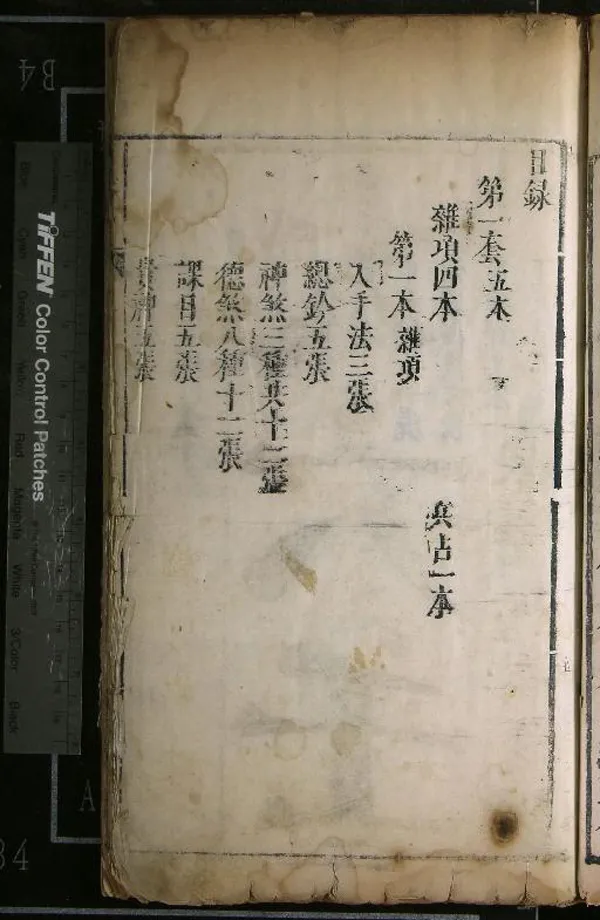 目録
第一套五本
雜項四本 兵占一本
第一本 雜項
入手法三張
總鈐五張
神煞三種共十二張
德煞八種十二張
課目五張
五張
TIFFEN Color Control Patches
Blue
Cyan
Green
Yellow
Red
Magenta
White
3/Color
Black
B4
A